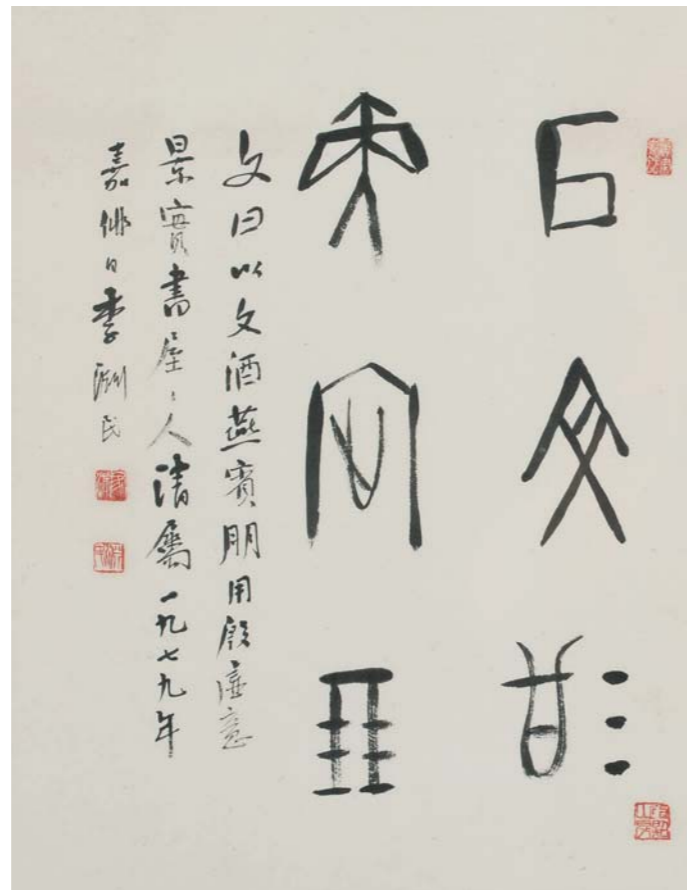 以文酒
燕賓朋
文曰以文酒燕賓朋用殷虛意
景實書屋主人清屬一九七九年
嘉俳日李